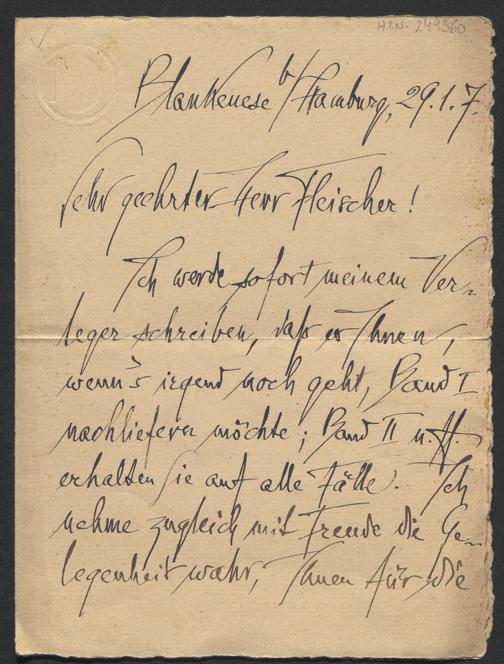 H.I.N. 249360
Blankenese b/Hamburg, 29.1.7.
Sehr geehrter Herr Fleischer!
Ich werde sofort meinem Ver-
leger schreiben, daß er Ihnen,
wenn's irgend noch geht, Band I
nachliefern möchte; Band II u. ff.
erhalten Sie auf alle Fälle. Ich
nehme zugleich mit Freude die Ge-
legenheit wahr, Ihnen für die